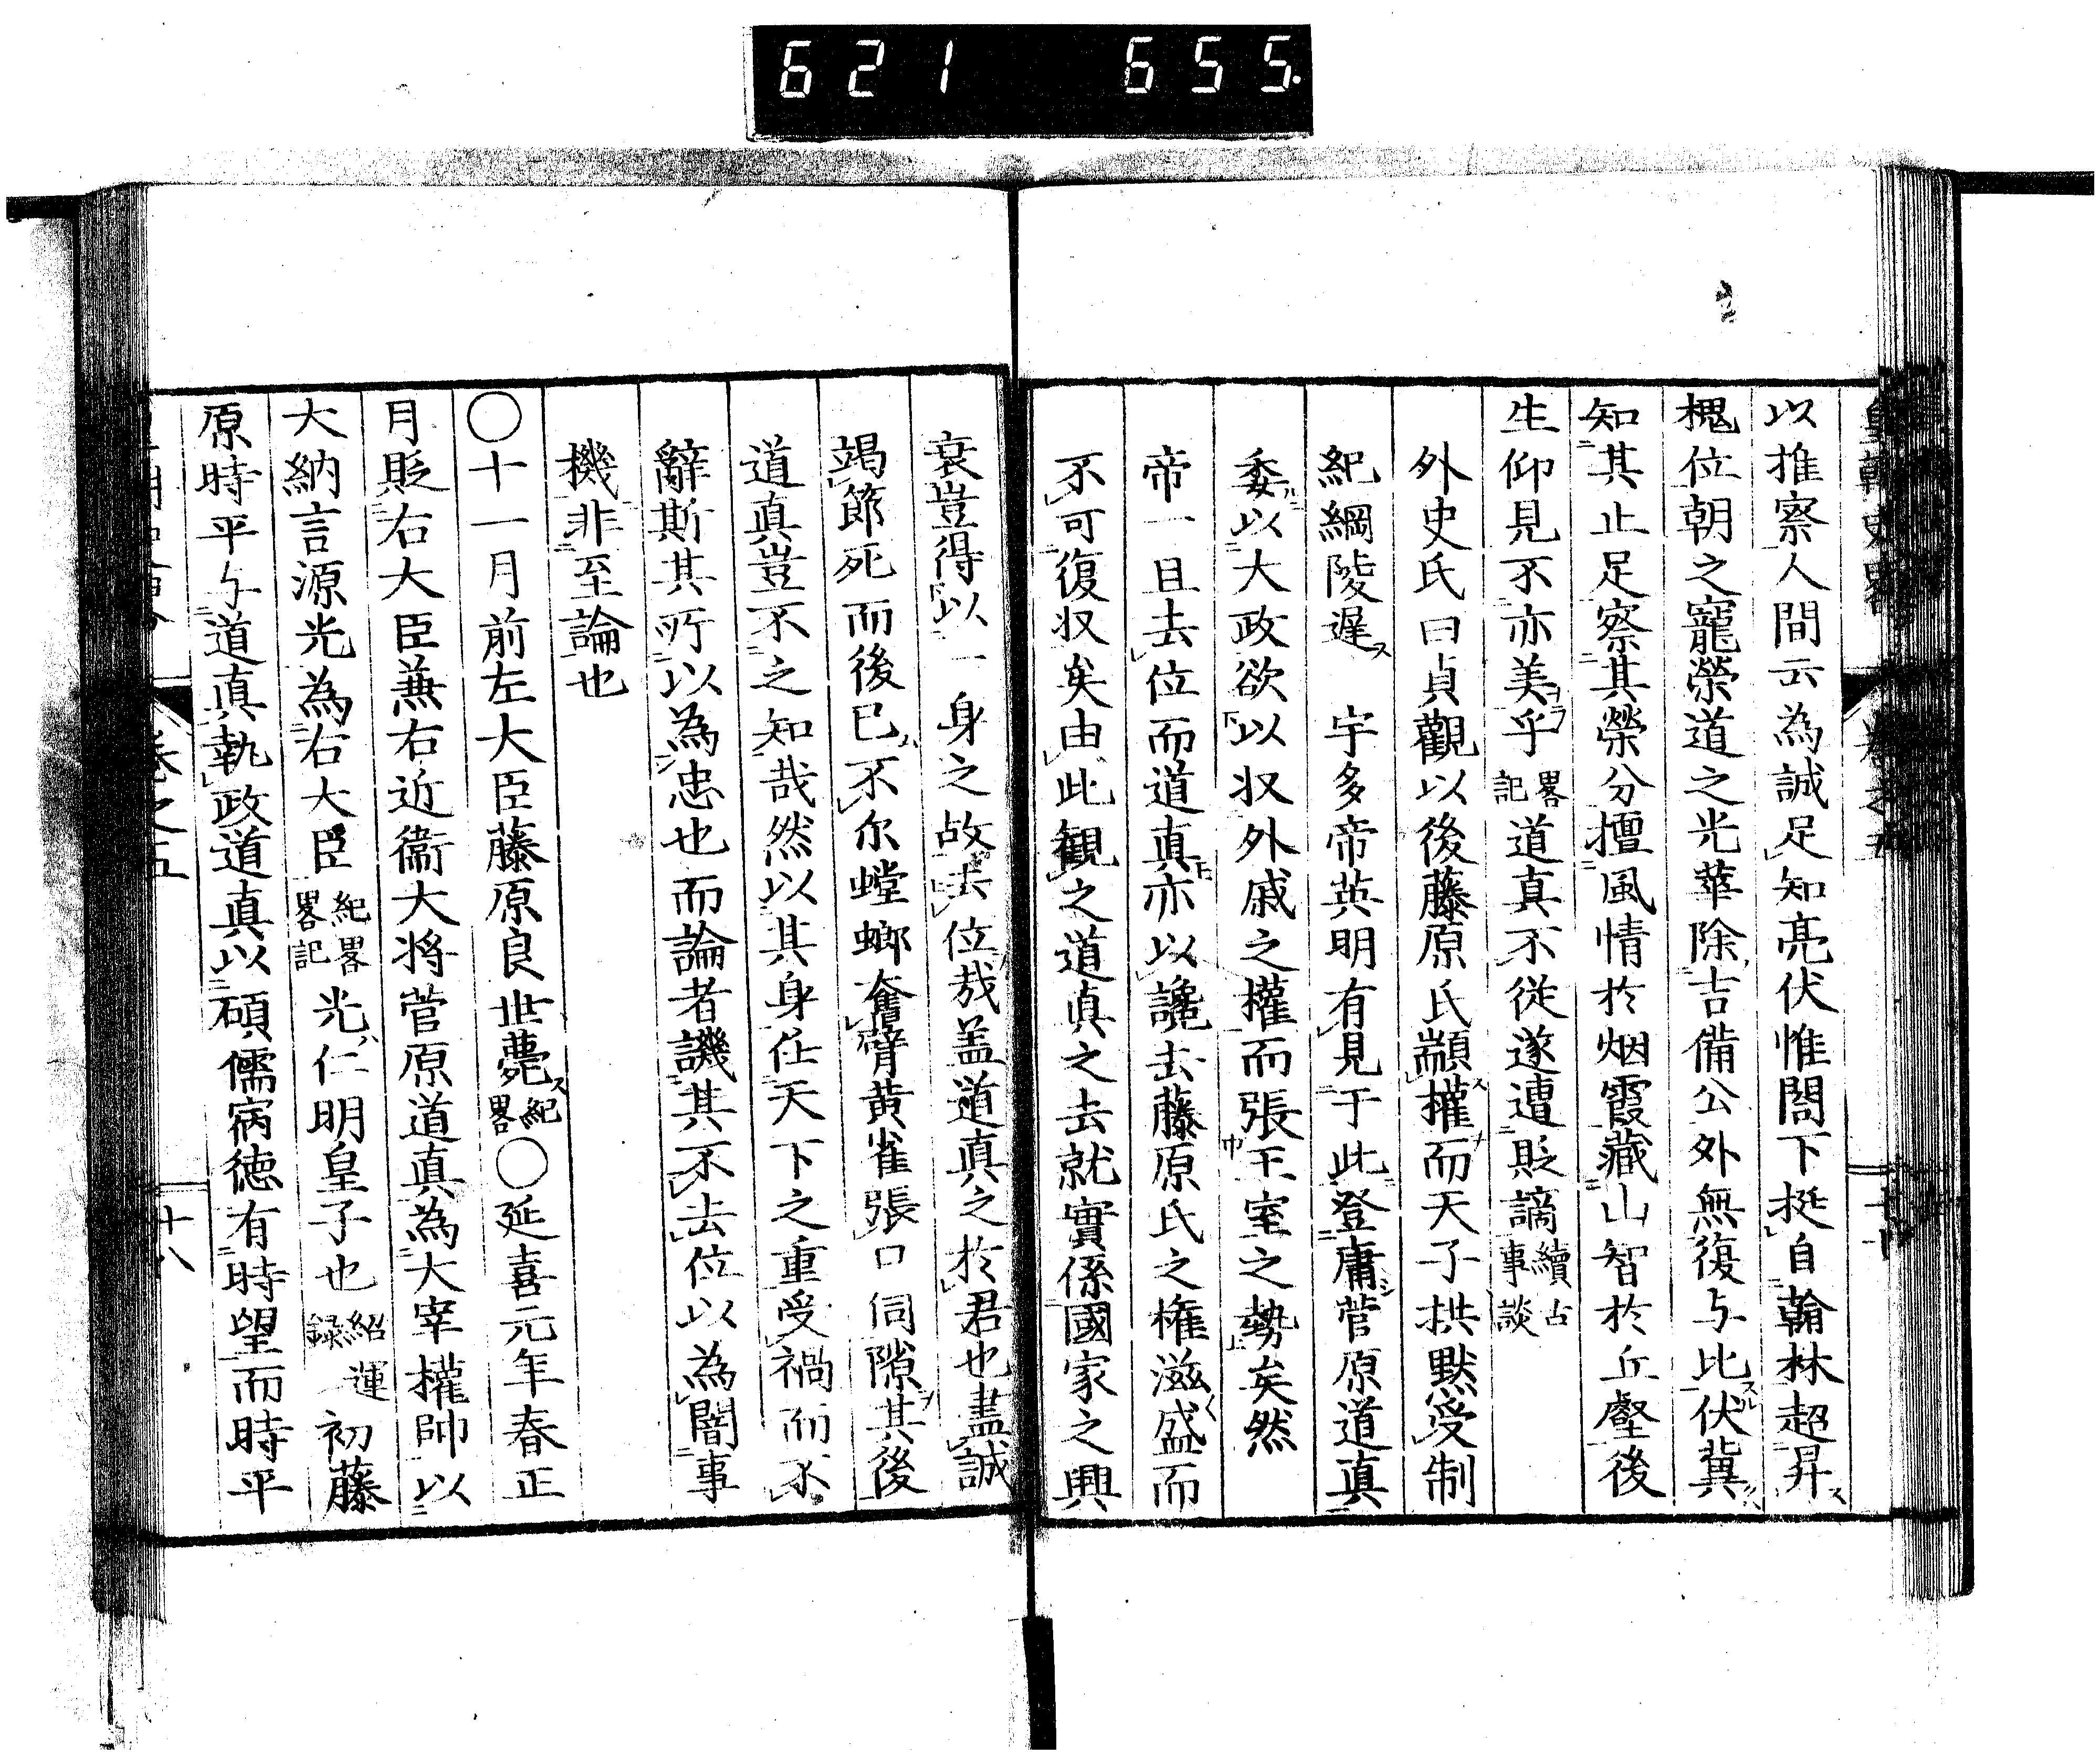 621 655.
以推察人間云為誠足知亮伏惟閤下挺自翰林超昇
槐位朝之寵榮道之光華除吉備公外無復与比伏冀
知其止足察其榮分擅風情於烟霞藏山智於丘壑後
生仰見不亦美乎畧記道真不従遂遭貶謫續古事談
外史氏曰貞觀以後藤原氏顓權而天子拱黙受制
紀綱陵遅 宇多帝英明有見于此登庸菅原道真
委以大政欲以収外戚之權而張王室之勢矣然
帝一旦去位而道真亦以讒去藤原氏之権滋盛而
不可復収矣由此観之道真之去就實係國家之興
衰豈得以一身之故去位哉盖道真之於君也盡誠
竭節死而後已不尔螳螂奮臂黄雀張口伺隙其後
道真豈不之知哉然以其身任天下之重受禍而不
辭斯其所以為忠也而論者譏其不去位以為闇事
機非至論也
〇十一月前左大臣藤原良世薨紀畧〇延喜元年春正
月貶右大臣兼右近衞大将菅原道真為大宰權帥以
大納言源光為右大臣紀畧畧記光仁明皇子也紹運録初藤
原時平与道真執政道真以碩儒宿徳有時望而時平
卷之五
十八